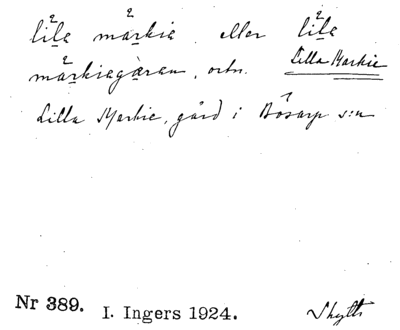 lila markie eller lila
markiegåren, ortn. Lilla Markie
Lilla Markie, gård i Bösarp s:n
Nr 389. I. Ingers 1924. Skytts